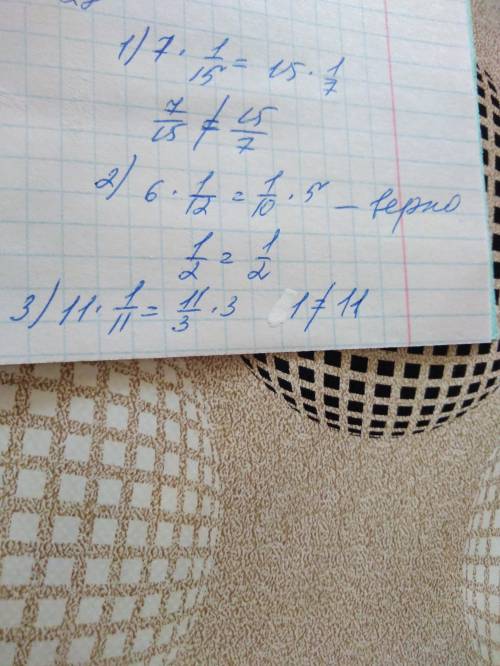 1) 7 · 1/15 = 15 · 1/7
7/15 ≠ 15/7
2) 6 · 1/12 = 1/10 · 5 – верно
1/2 = 1/2
3) 11 · 1/11 = 11/3 · 3 1 ≠ 11